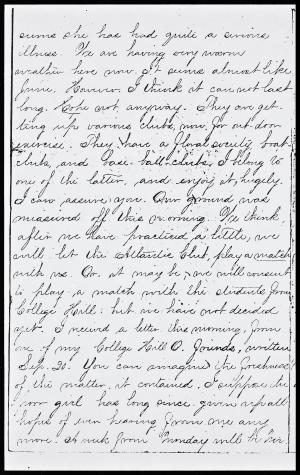 seems she has had quite a serious
illness. We are having very warm
weather here now. It seems almost like
June. However I think it can not last
long. Hope not anyway. They are get-
ting up various clubs, now, for out door
exercise. They have a floral society, boat
clubs, and base-ball clubs. I belong to
one of the latter, and enjoy it hugely
I can assure you. Our ground was
measured off this morning. We think
after we have practiced a little, we
will let the Atlantic Club, play a match
with us. Or, it may be, we will consent
to play a match with the students from
College Hill: but we have not decided
yet. I received a letter this morning, from
one of my College Hill O. friends, written
Sep. 20. You can imagine the freshness
of the matter, it contained. I suppose the
poor girl has long since given up all
hopes of ever hearing from me any
more. A week from Monday will be